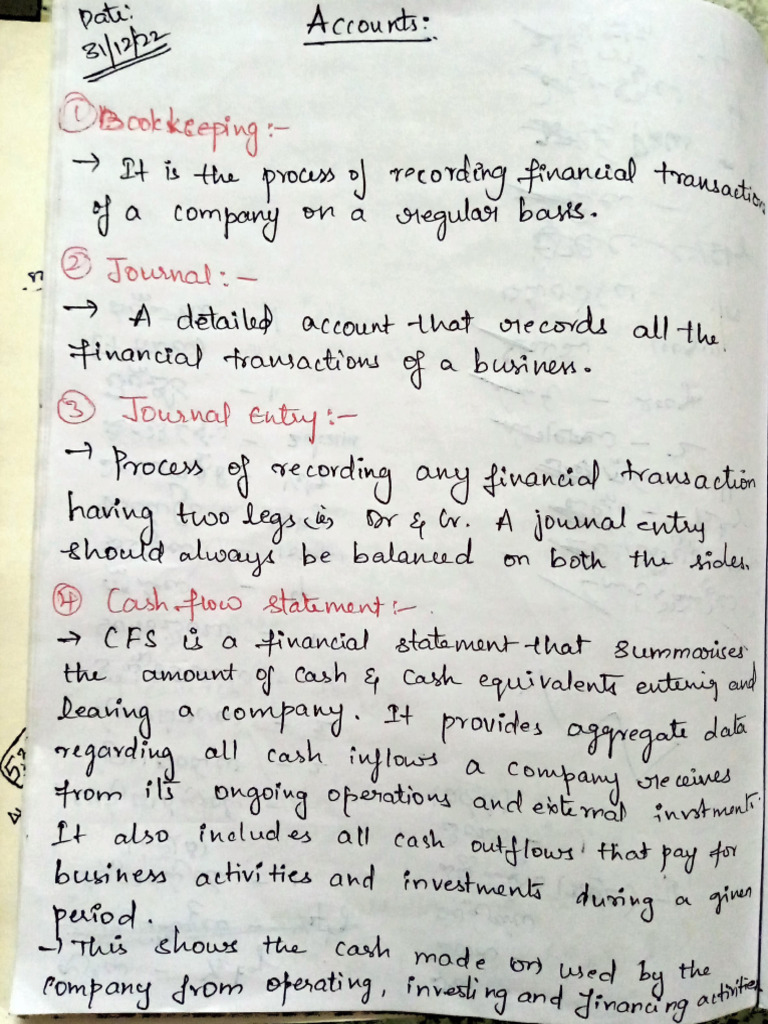 Date:
31/12/22
Accounts:
① Bookkeeping:-
→ It is the process of recording financial transactions
of a company on a regular basis.
② Journal:-
→ A detailed account that records all the
financial transactions of a business.
③ Journal Entry:-
→ Process of recording any financial transaction
having two legs ie Dr & Cr. A journal entry
should always be balanced on both the sides.
④ Cash flow statement:-
→ CFS is a financial statement that summarises
the amount of cash & cash equivalents entering and
leaving a company. It provides aggregate data
regarding all cash inflows a company receives
from its ongoing operations and external invstment.
It also includes all cash outflows that pay for
business activities and investments during a given
period.
→ This shows the cash made (or) used by the
company from operating, investing and financing activities